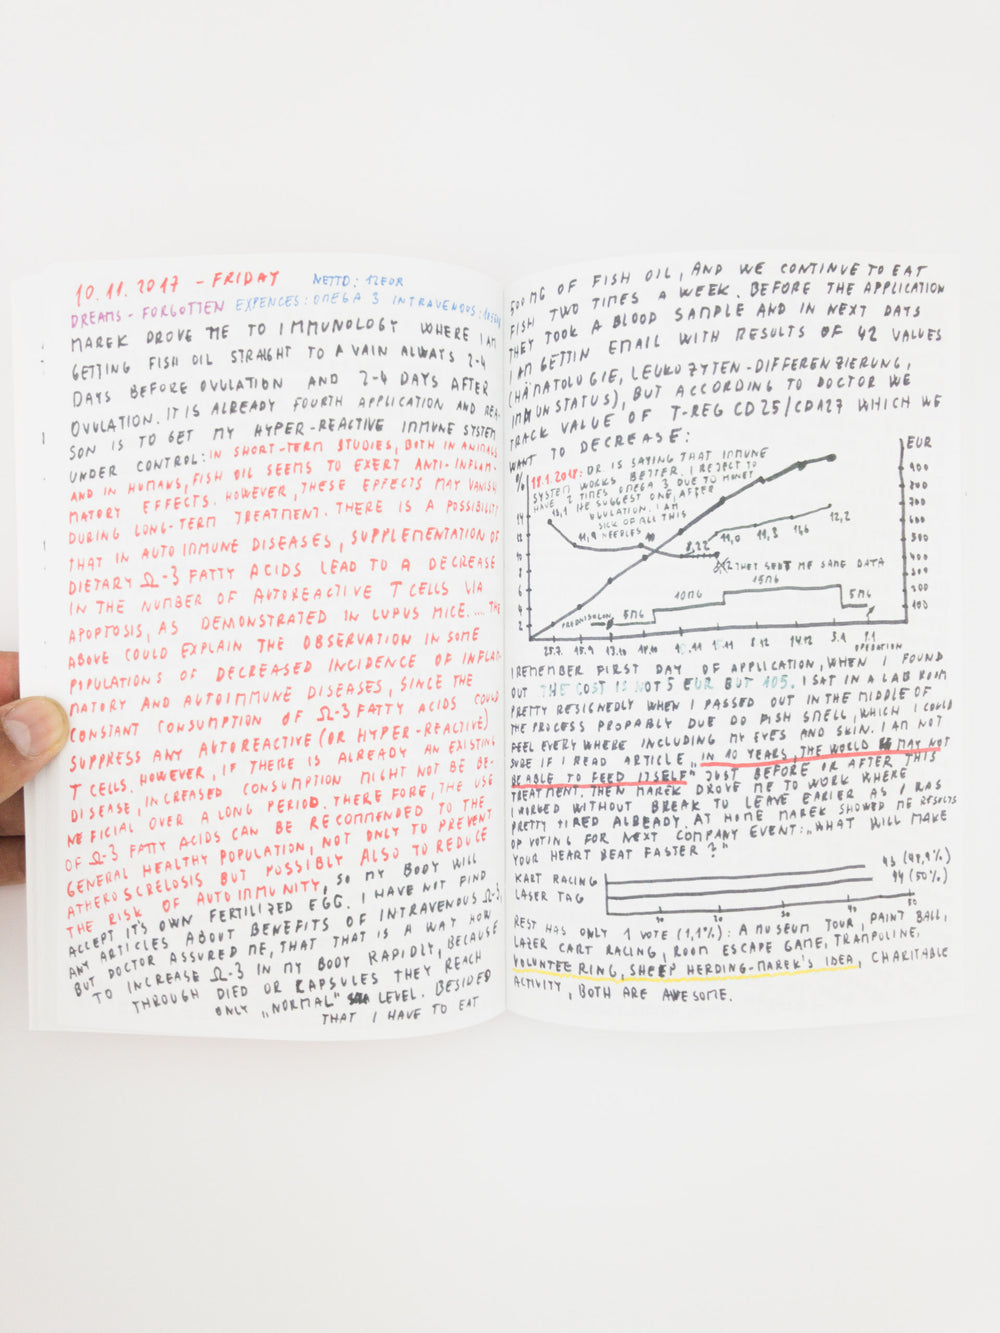 10.11.2017 - FRIDAY NETTO: 12EUR
DREAMS - FORGOTTEN EXPENCES: OMEGA 3 INTRAVENOUS:
MAREK DROVE ME TO IMMUNOLOGY WHERE I AM
GETTING FISH OIL STRAIGHT TO A VAIN ALWAYS 2-4
DAYS BEFORE OVULATION AND 2-4 DAYS AFTER
OVULATION. IT IS ALREADY FOURTH APPLICATION AND REA-
SON IS TO GET MY HYPER-REACTIVE IMMUNE SYSTEM
UNDER CONTROL: IN SHORT-TERM STUDIES, BOTH IN ANIMALS
AND IN HUMANS, FISH OIL SEEMS TO EXERT ANTI-INFLAM-
MATORY EFFECTS. HOWEVER, THESE EFFECTS MAY VANISH
DURING LONG-TERM TREATMENT. THERE IS A POSSIBILITY
THAT IN AUTOIMMUNE DISEASES, SUPPLEMENTATION OF
DIETARY Ω-3 FATTY ACIDS LEAD TO A DECREASE
IN THE NUMBER OF AUTOREACTIVE T CELLS VIA
APOPTOSIS, AS DEMONSTRATED IN LUPUS MICE.... THE
ABOVE COULD EXPLAIN THE OBSERVATION IN SOME
POPULATIONS OF DECREASED INCIDENCE OF INFLAM-
MATORY AND AUTOIMMUNE DISEASES, SINCE THE
CONSTANT CONSUMPTION OF Ω-3 FATTY ACIDS COULD
SUPPRESS ANY AUTOREACTIVE (OR HYPER-REACTIVE)
T CELLS. HOWEVER, IF THERE IS ALREADY AN EXISTING
DISEASE, INCREASED CONSUMPTION MIGHT NOT BE BE-
NEFICIAL OVER A LONG PERIOD. THEREFORE, THE USE
OF Ω-3 FATTY ACIDS CAN BE RECOMMENDED TO THE
GENERAL HEALTHY POPULATION, NOT ONLY TO PREVENT
ATHEROSCRELOSIS BUT POSSIBLY ALSO TO REDUCE
THE RISK OF AUTOIMMUNITY, SO MY BODY WILL
ACCEPT IT'S OWN FERTILIZED EGG. I HAVE NOT FIND
ANY ARTICLES ABOUT BENEFITS OF INTRAVENOUS Ω-3,
BUT DOCTOR ASSURED ME, THAT THAT IS A WAY HOW
TO INCREASE Ω-3 IN MY BODY RAPIDLY, BECAUSE
THROUGH DIED OR CAPSULES THEY REACH
ONLY „NORMAL" LEVEL. BESIDES
THAT I HAVE TO EAT
500 MG OF FISH OIL, AND WE CONTINUE TO EAT
FISH TWO TIMES A WEEK. BEFORE THE APPLICATION
THEY TOOK A BLOOD SAMPLE AND IN NEXT DAYS
I AM GETTIN EMAIL WITH RESULTS OF 42 VALUES
(HÄMATOLOGIE, LEUKOZYTEN-DIFFERENZIERUNG,
IMMUNSTATUS), BUT ACCORDING TO DOCTOR WE
TRACK VALUE OF T-REG CD25/CD127 WHICH WE
WANT TO DECREASE:
% EUR
18.1.2018: DR IS SAYING THAT IMMUNE
SYSTEM WORKS BETTER. I REJECT TO
HAVE 2 TIMES OMEGA 3 DUE TO MONEY
HE SUGGEST ONE, AFTER
OVULATION. I AM
SICK OF ALL THIS
NEEDLES
13,1 11,9 10 8,22 11,0 11,3 11,6 12,2
THEY SENT ME SAME DATA
PREDNISOLON 5MG 10MG 15MG 5MG
14 12 10 8 6 4 2
900 800 700 600 500 400 300 200 100
25.7. 15.9 13.10 .11 .11 8.12 14.12 5.1 9.1
OPERATION
I REMEMBER FIRST DAY OF APPLICATION, WHEN I FOUND
OUT THE COST IS NOT 5 EUR BUT 105. I SAT IN A LAB ROOM
PRETTY RESIGNEDLY WHEN I PASSED OUT IN THE MIDDLE OF
THE PROCESS PROPABLY DUE DO FISH SMELL, WHICH I COULD
FEEL EVERYWHERE INCLUDING MY EYES AND SKIN. I AM NOT
SURE IF I READ ARTICLE „IN 10 YEARS, THE WORLD MAY NOT
BE ABLE TO FEED ITSELF" JUST BEFORE OR AFTER THIS
TREATMENT. THEN MAREK DROVE ME TO WORK WHERE
I WORKED WITHOUT BREAK TO LEAVE EARLIER AS I WAS
PRETTY TIRED ALREADY. AT HOME MAREK SHOWED ME RESULTS
OF VOTING FOR NEXT COMPANY EVENT: „WHAT WILL MAKE
YOUR HEART BEAT FASTER?"
KART RACING 43 (48,9%)
LASER TAG 44 (50%)
10 20 30 40 50
REST HAS ONLY 1 VOTE (1,1%): A MUSEUM TOUR, PAINT BALL,
LAZER CART RACING, ROOM ESCAPE GAME, TRAMPOLINE,
VOLUNTEERING, SHEEP HERDING-MAREK'S IDEA, CHARITABLE
ACTIVITY, BOTH ARE AWESOME.